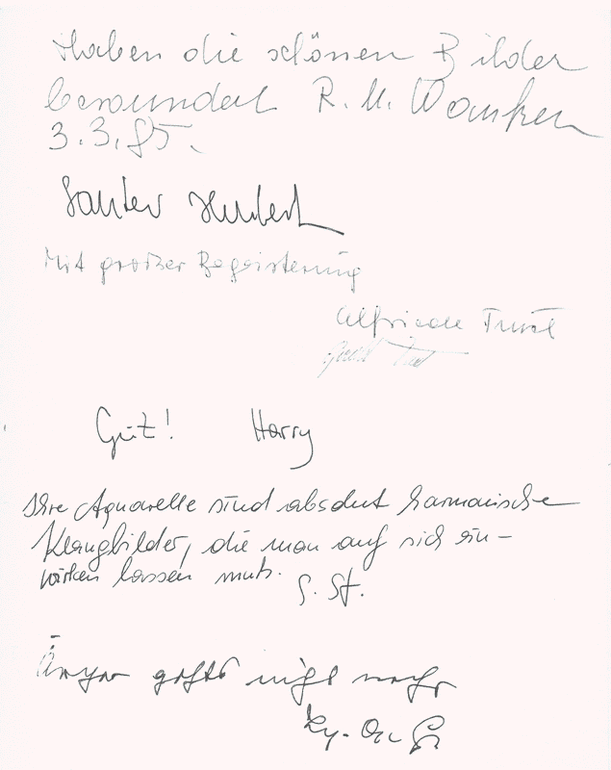 Haben die schönen Bilder
bewundert R. U. Wanken
3.3.85.
Sauter Hubert
Mit großer Begeisterung
Alfriede
Gut! Harry
Ihre Aquarelle sind absolut harmonische
Klangbilder, die man auf sich ein-
wirken lassen muß.
S. St.
geht's nicht mehr